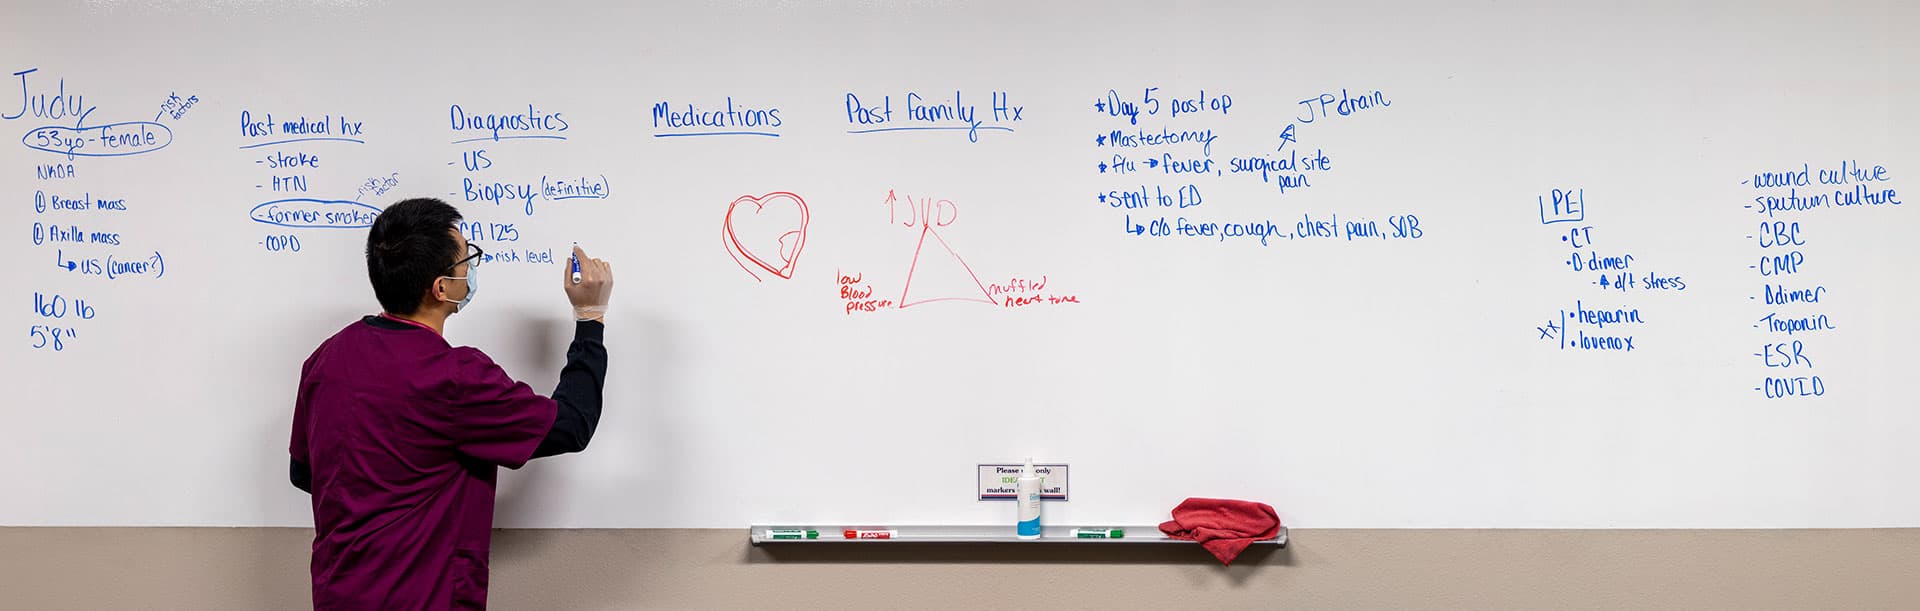 Judy
risk factors
53yo - female
NKDA
① Breast mass
① Axilla mass
↳ US (cancer?)
160 lb
5'8"
Past medical hx
- stroke
- HTN
risk factor
- former smoker
- COPD
Diagnostics
- US
- Biopsy (definitive)
CA 125
→ risk level
Medications
Past Family Hx
↑ JVD
low
Blood
pressure
muffled
heart tone
* Day 5 post op
* Mastectomy
* f/u → fever, surgical site
pain
JP drain
* sent to ED
↳ c/o fever, cough, chest pain, SOB
PE
• CT
• D-dimer
- ↑ d/t stress
** • heparin
• lovenox
- wound culture
- sputum culture
- CBC
- CMP
- Ddimer
- Troponin
- ESR
- COVID
Please only
IDEA
markers wall!
EXPO